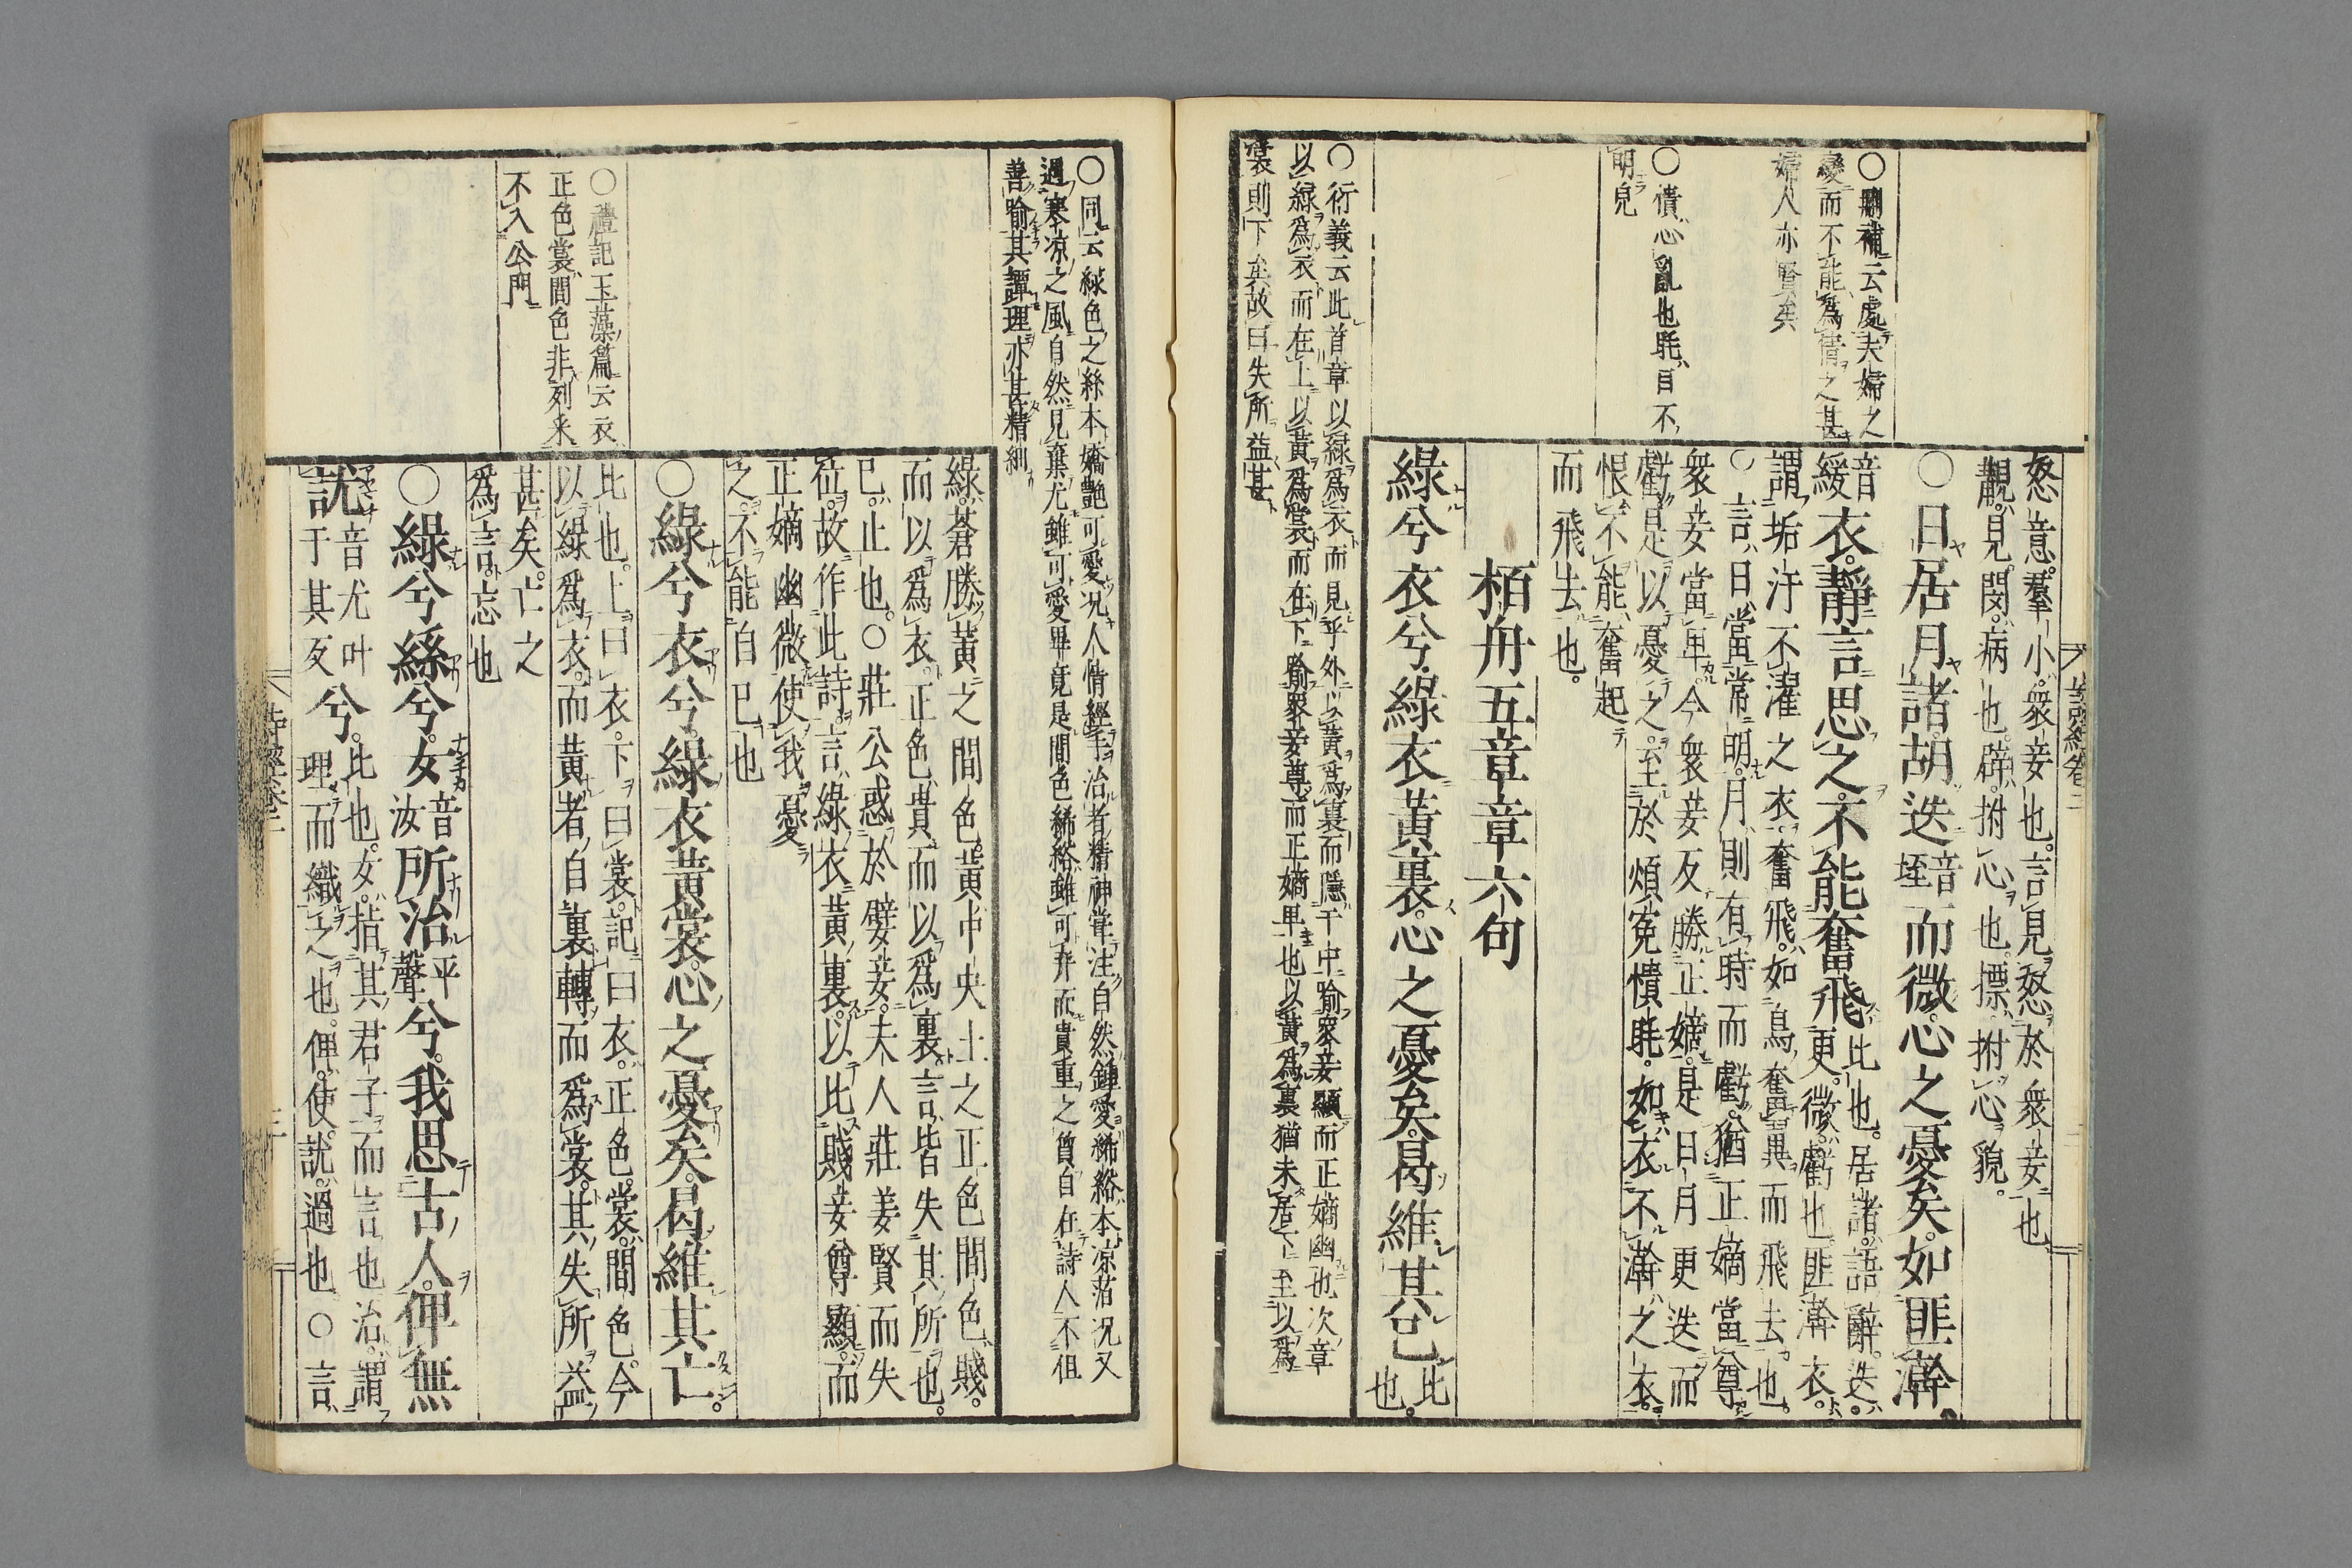 怒意。羣小。衆妾也。言見怒於衆妾也
覯。見。閔。病也。辟。拊心也。摽。拊心貌。
○日居月諸。胡迭音垤而微。心之憂矣。如匪澣
音緩衣。靜言思之。不能奮飛。比也。居諸。語辭。迭。更。微。虧也。匪澣衣。
謂垢汙不濯之衣。奮飛。如鳥奮翼而飛去也。
○言日當常明。月則有時而虧。猶正嫡當尊
衆妾當卑。今衆妾反勝正嫡。是日月更迭而
虧。是以憂之。至於煩冤憒眊。如衣不澣之衣。
恨不能奮起
而飛去也。
栢舟五章章六句
綠兮衣兮。綠衣黃裏。心之憂矣。曷維其已。比也。
○刪補云處夫婦之
變而不能爲情之甚
婦人亦賢矣
○憒心亂也眊目不
明皃
○衍義云此首章以綠爲衣而見乎外以黃爲裏而隱于中喻衆妾顯而正嫡幽也次章
以綠爲衣而在上以黃爲裳而在下喻衆妾尊而正嫡卑也以黃爲裏猶未居下至以爲
裳則下矣故曰失所益甚
○同云綠色之絲本嬌艷可愛況人情經手治者精神常注自然鍾愛絺綌本凉薄況又
過寒凉之風自然見棄尤雖可愛畢竟是間色絺綌雖可弃而貴重之質自在詩人不但
善喻其譚理亦甚精細
綠。蒼勝黃之間色。黃。中央土之正色。間色賤。
而以爲衣。正色貴。而以爲裏。言皆失其所也。
已。止也。○莊公惑於嬖妾。夫人莊姜賢而失
位。故作此詩。言綠衣黃裏。以比賤妾尊顯。而
正嫡幽微。使我憂
之。不能自已也
○綠兮衣兮。綠衣黃裳。心之憂矣。曷維其亡。
比也。上曰衣。下曰裳。記曰衣。正色。裳。間色。今
以綠爲衣。而黃者自裏轉而爲裳。其失所益
甚矣。亡之
爲言。忘也
○綠兮絲兮。女音汝所治平聲兮。我思古人。俾無
訧音尤叶于其反兮。比也。女。指其君子而言也治。謂
理而織之也。俾。使。訧。過也○言
○禮記玉藻篇云衣
正色裳間色非列采
不入公門